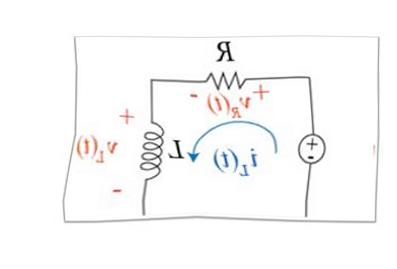 R
- v_R(t) +
+
v_L(t)
L
i_L(t)
+
-
-